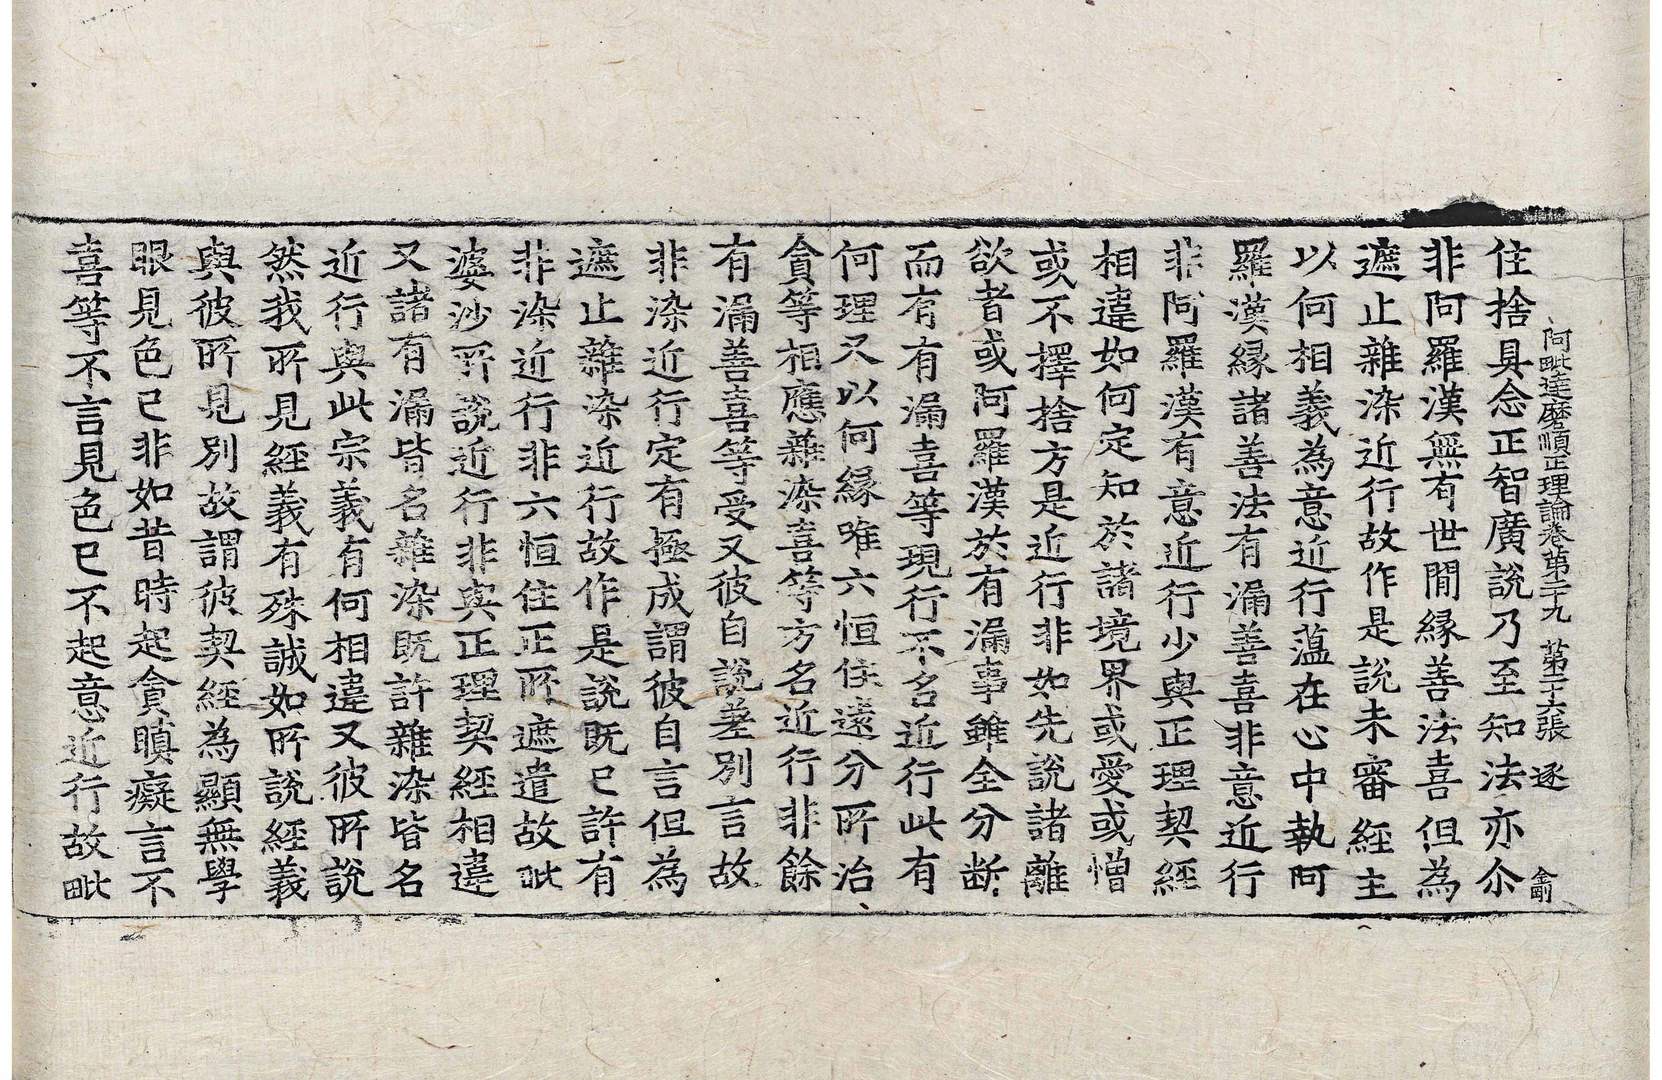 阿毗達磨順正理論卷第二十九　第二十六張　逐
住捨具念正智廣說乃至知法亦尒
非阿羅漢無有世間緣善法喜但為
遮止雜染近行故作是說未審經主
以何相義為意近行薀在心中執阿
羅漢緣諸善法有漏善喜非意近行
非阿羅漢有意近行少與正理契經
相違如何定知於諸境界或愛或憎
或不擇捨方是近行非如先說諸離
欲者或阿羅漢於有漏事雖全分断
而有有漏喜等現行不名近行此有
何理又以何緣唯六恒住遠分所治
貪等相應雜染喜等方名近行非餘
有漏善喜等受又彼自說差別言故
非染近行定有極成謂彼自言但為
遮止雜染近行故作是說既已許有
非染近行非六恒住正所遮遣故毗
婆沙所說近行非與正理契經相違
又諸有漏皆名雜染既許雜染皆名
近行與此宗義有何相違又彼所說
然我所見經義有殊誠如所說經義
與彼所見別故謂彼契經為顯無學
眼見色已非如昔時起貪瞋癡言不
喜等不言見色已不起意近行故毗